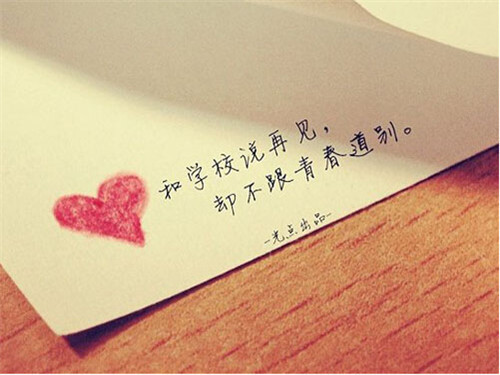 和学校说再见，
却不跟青春道别。
-光点出品-